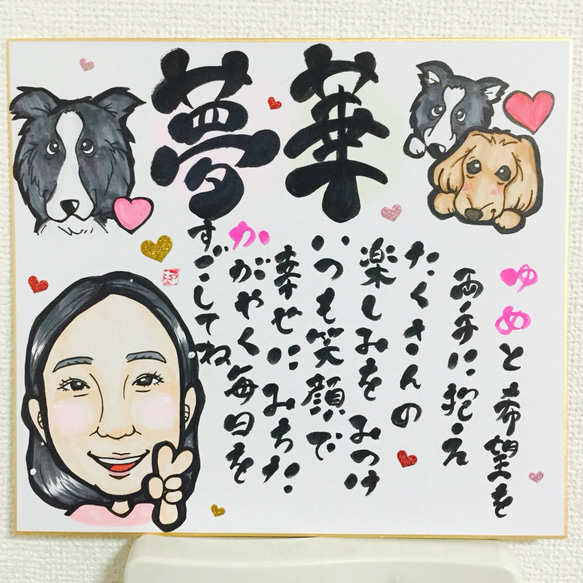 夢華
ゆめと希望を
両手に抱え
たくさんの
楽しみをみつけ
いつも笑顔で
幸せにみちた
かがやく毎日を
すごしてね